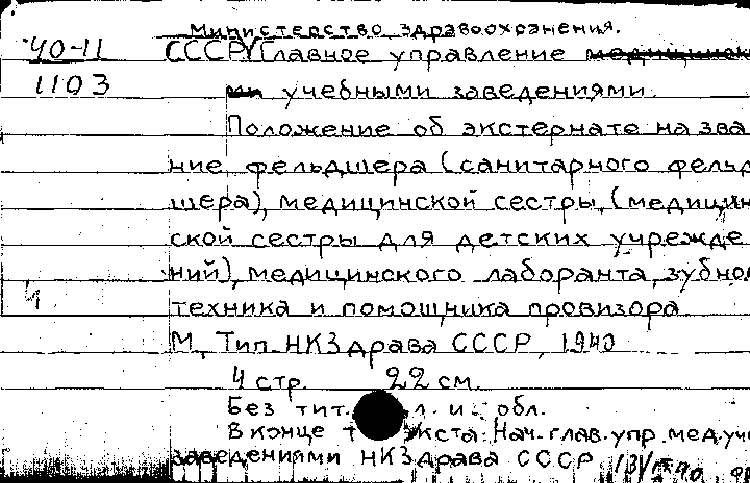 Министерство здравоохранения.
40-11 СССР Главное управление медицинск
1103 ми учебными заведениями.
Положение об экстернате на зва
ние фельдшера (санитарного фельд
шера), медицинской сестры, (медицин
ской сестры для детских учрежде
ний), медицинского лаборанта, зубно
4 техника и помощника провизора
М, Тип. НКЗдрава СССР, 1940
4 стр. 22 см.
Без тит. л. и обл.
В конце текста: Нач. глав. упр. мед. уч
заведениями НКЗдрава СССР